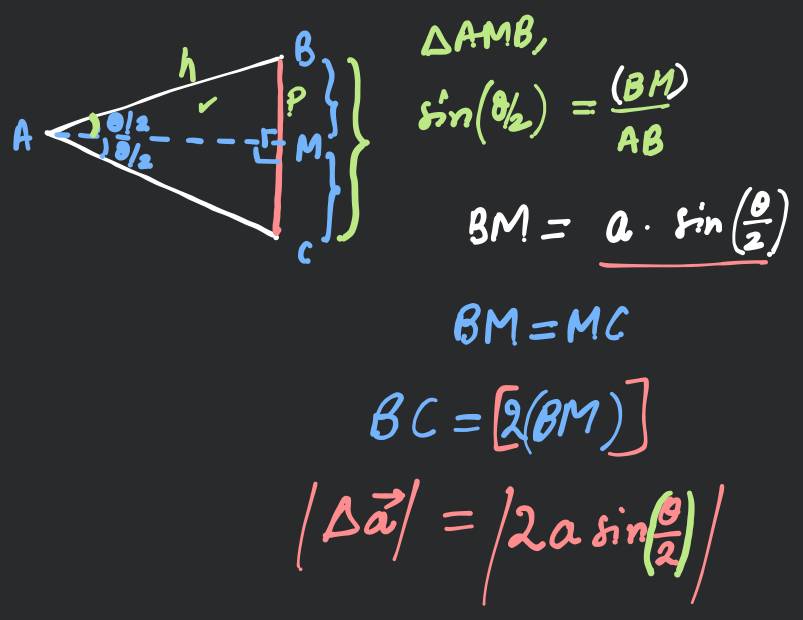 h
B
p
A
θ/2
θ/2
M
C
ΔAMB,
sin(θ/2) = (BM)/AB
BM = a · sin(θ/2)
BM = MC
BC = [2(BM)]
|Δa⃗| = |2a sin(θ/2)|